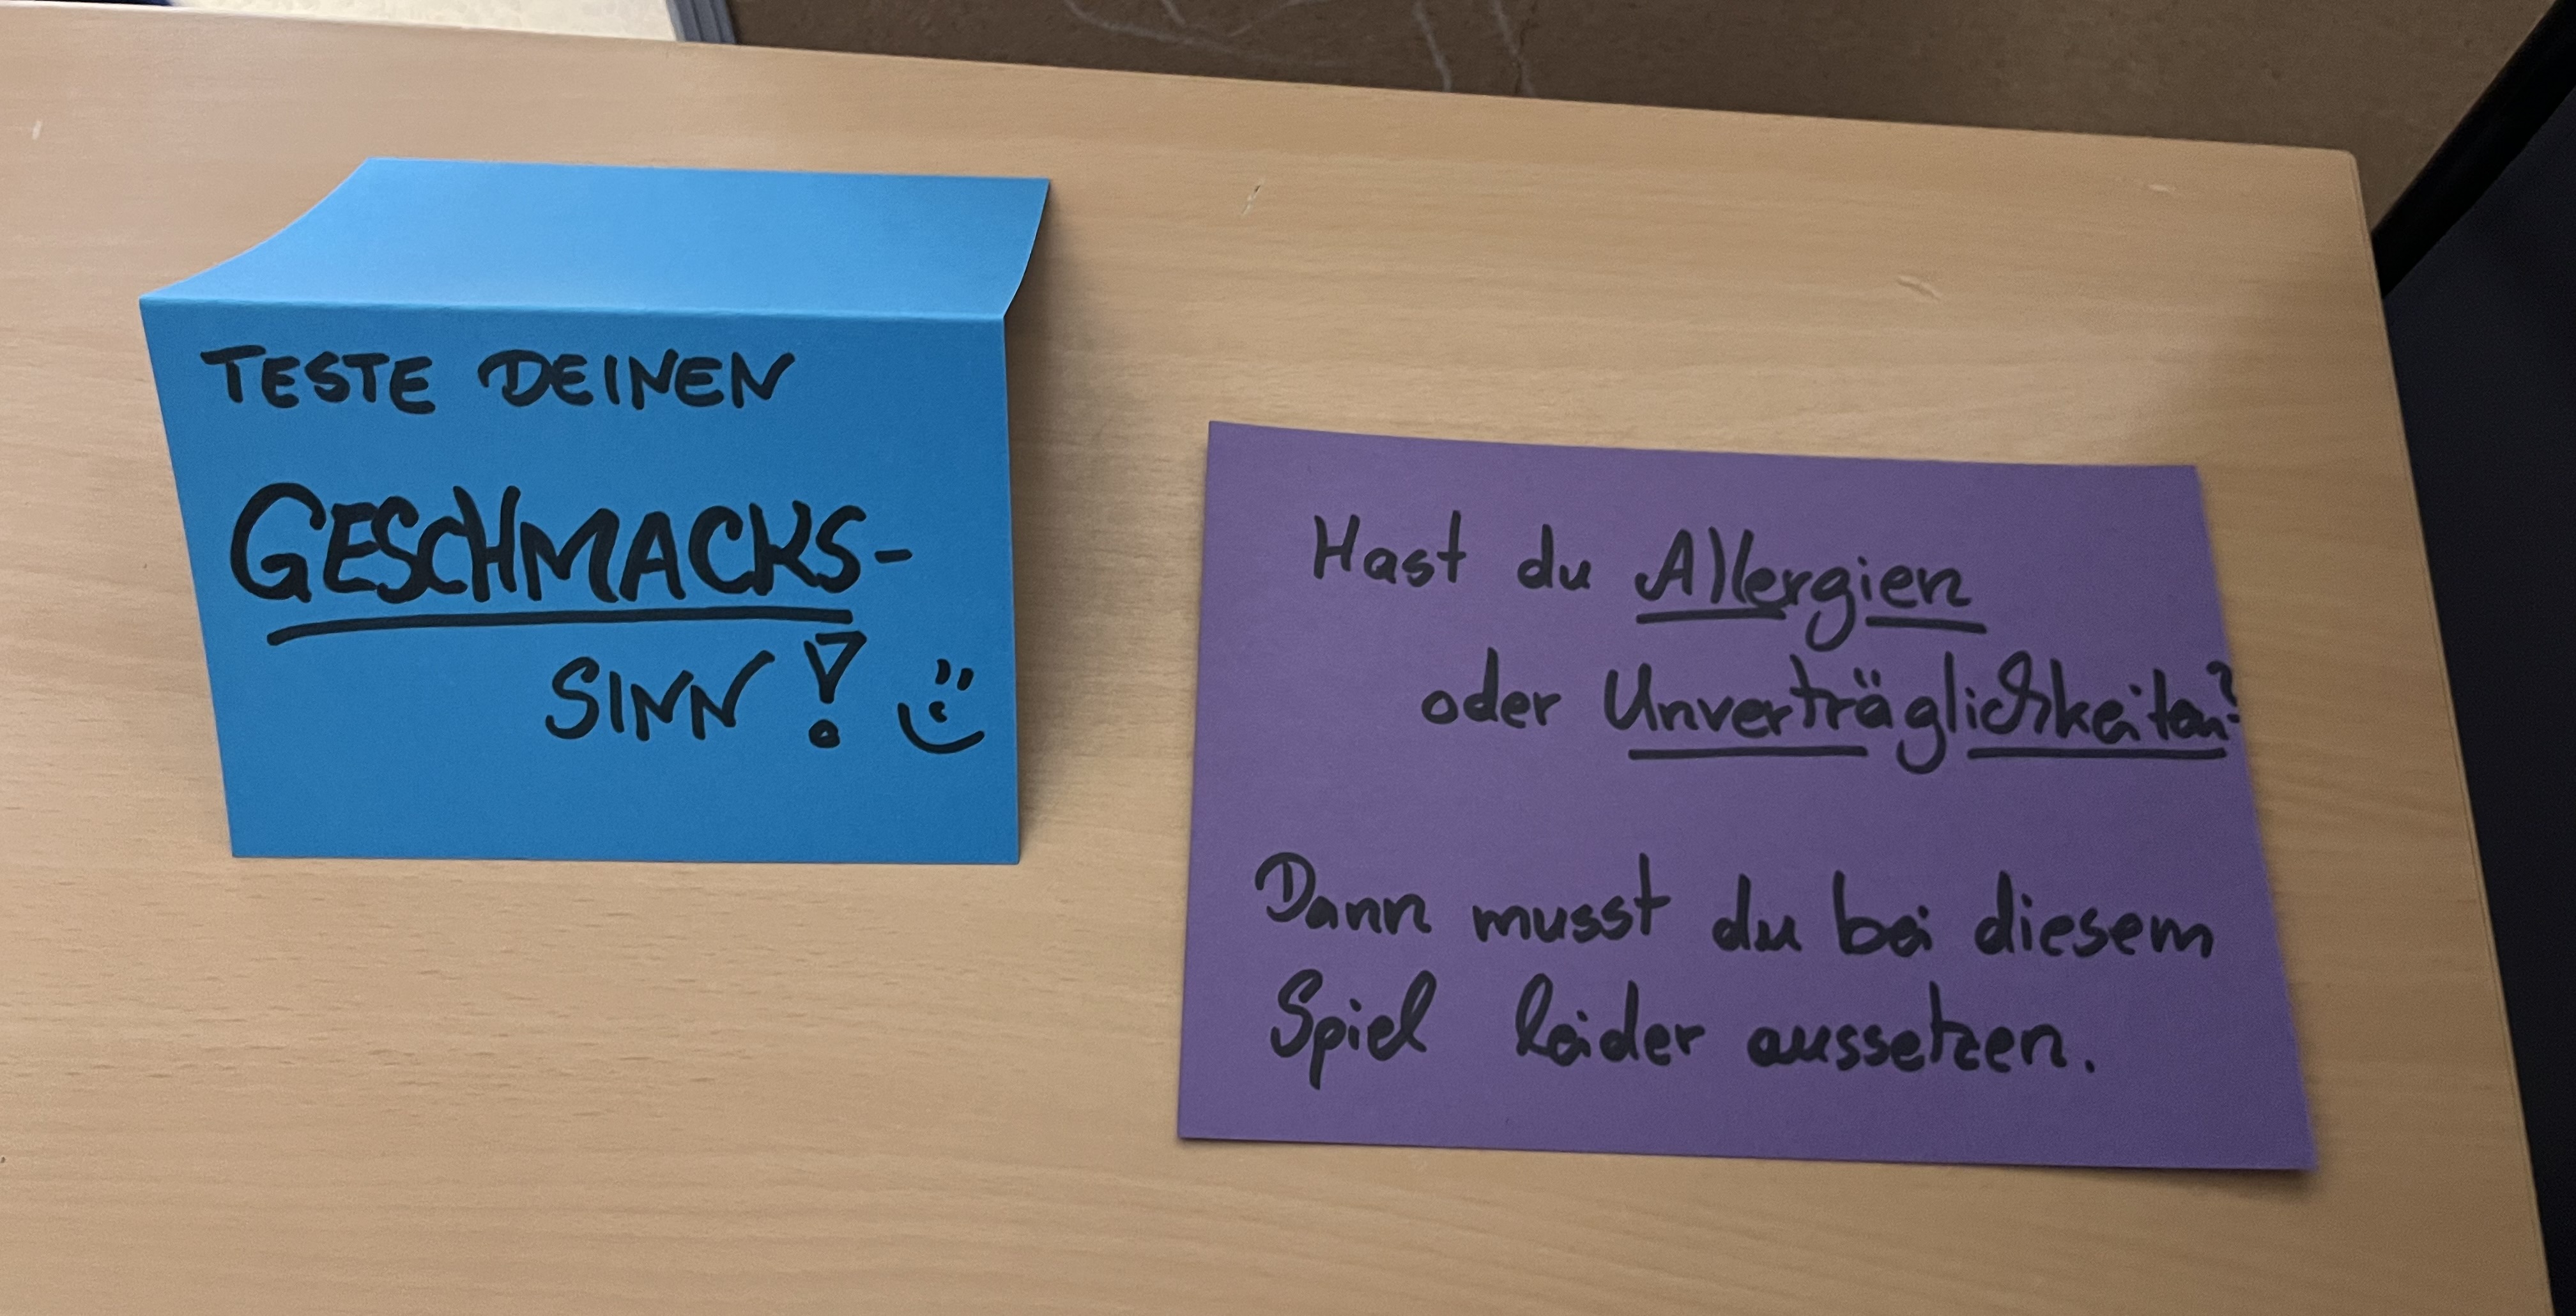 TESTE DEINEN
GESCHMACKS-
SINN!
Hast du Allergien
oder Unverträglichkeiten?
Dann musst du bei diesem
Spiel leider aussetzen.